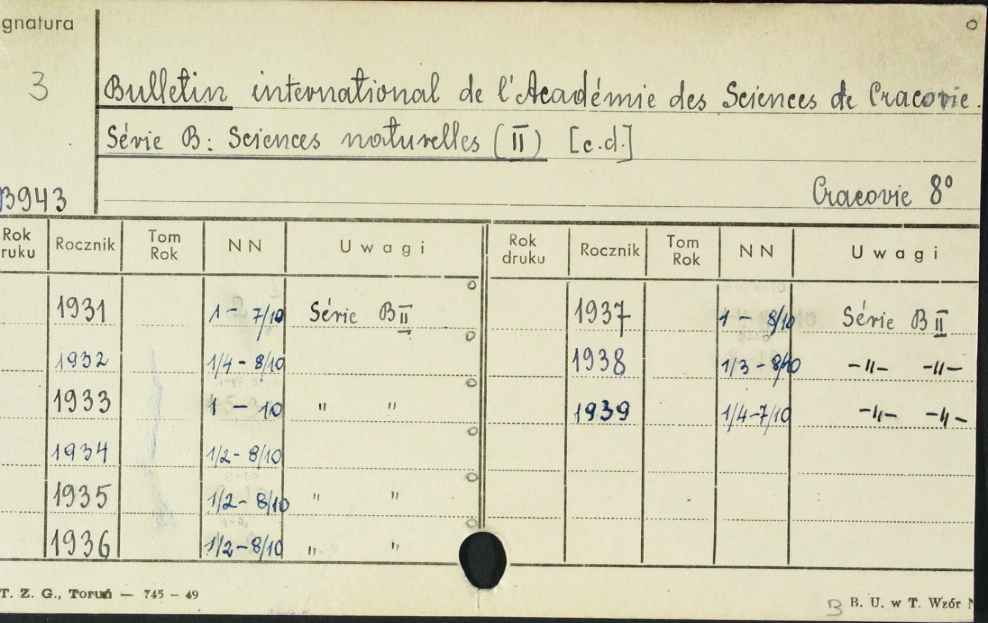 gnatura
3
Bulletin international de l'Académie des Sciences de Cracovie.
Série B: Sciences naturelles (II) [c.d.]
B943
Cracovie 8°
Rok ruku Rocznik Tom Rok NN Uwagi Rok druku Rocznik Tom Rok NN Uwagi
1931 1 - 7/10 Série BII 1937 1 - 8/10 Série BII
1932 1/4 - 8/10 1938 1/3 - 8/10 -"- -"-
1933 1 - 10 " " 1939 1/4-7/10 -"- -"-
1934 1/2 - 8/10
1935 1/2 - 8/10 " "
1936 1/2 - 8/10 " "
T. Z. G., Toruń — 745 — 49
B B. U. w T. Wzór N